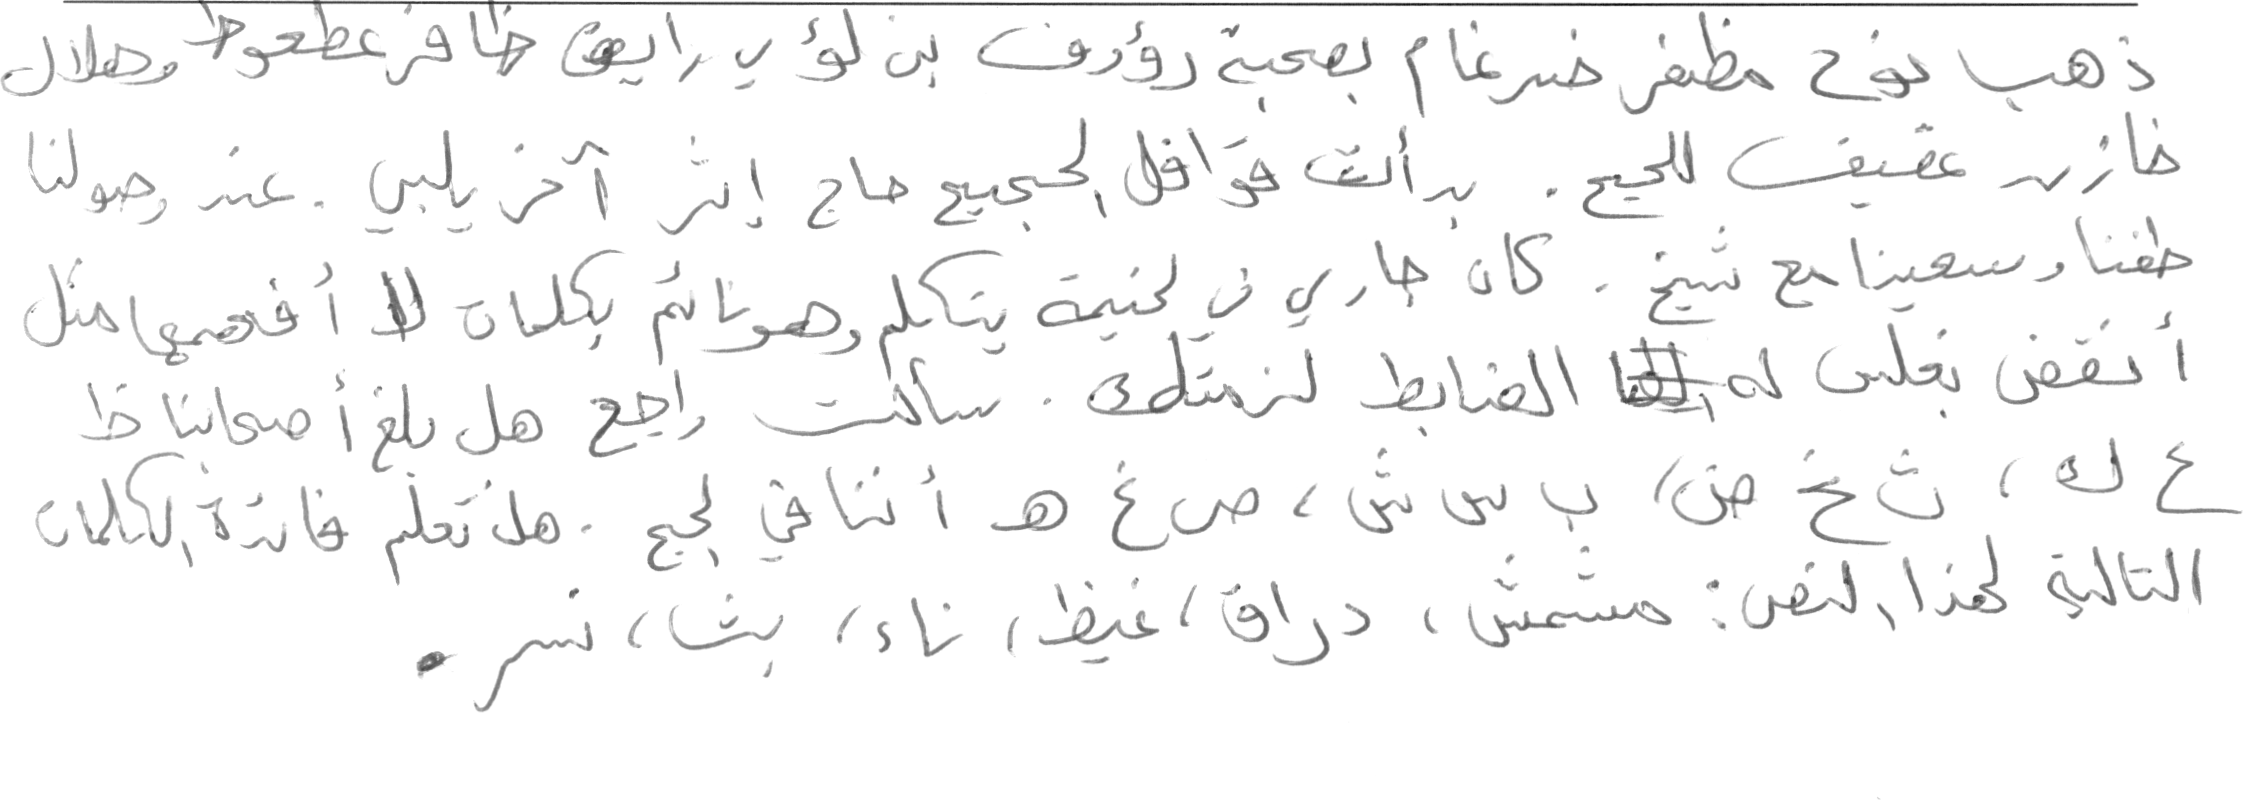 ذهب نوح مظفر ضرغام بصحبة رؤوف بن لؤي رايق ظافر عطعوط وهلال
خازن عفيف للحج. بدأت قوافل الحجيج حاج إثر آخر يلبي. عند وصولنا
طفنا وسعينا مع شيخ. كان جاري في لخيمة يتكلم وهو نائم بكلمات لا أفهمها مثل
أنقض بغلس له الضابط لزمتك. سألت راجح هل بلغ أصحابنا ظ
ع ك، ث خ ض، ب س ش، ص غ هـ أننا في لحج. هل تعلم فائدة الكلمات
التالية لهذا النص: مشمش، دراق، غيظ، ناء، بث، نسر.